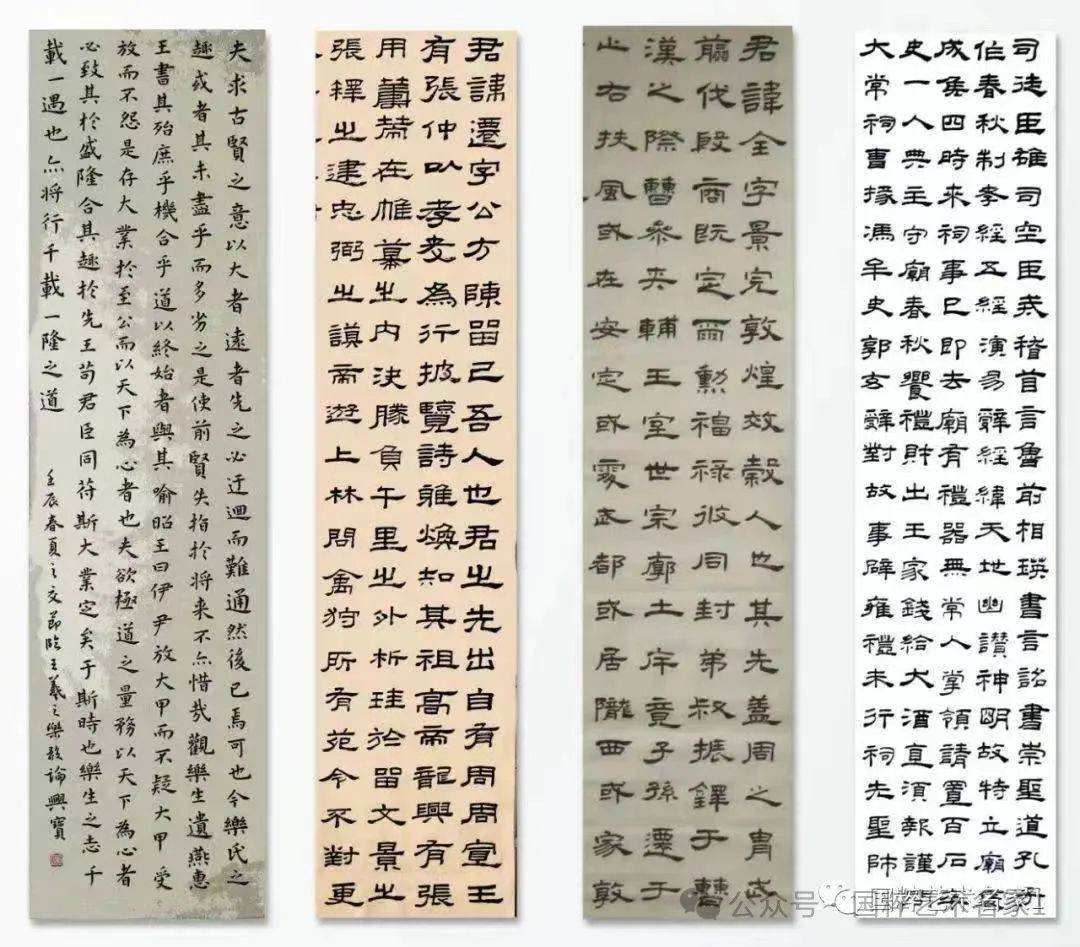 夫求古賢之意以大者遠者先之必迂迴而難通然後已焉可也今樂氏之
趣或者其未盡乎而多劣之是使前賢失指於将来不亦惜哉觀樂生遺燕惠
王書其殆庶乎機合乎道以終始者與其喻昭王曰伊尹放大甲而不疑大甲受
放而不怨是存大業於至公而以天下為心者也夫欲極道之量務以天下為心者
必致其於盛隆合其趣於先王苟君臣同苻斯大業定矣于斯時也樂生之志千
載一遇也亦将行千載一隆之道
壬辰春夏之交節臨王羲之樂毅論興寶
君諱遷字公方陳留己吾人也君之先出自有周周宣王
有張仲以孝友為行披覽詩雅煥知其祖高帝龍興有張
用籌策在帷幕之内決勝負千里之外析珪於留文景之
張釋之建忠弼之謨帝遊上林問禽狩所有苑令不對更
君諱全字景完敦煌效穀人也其先蓋周之胄武
前代殷商既定爾勳福祿攸同封弟叔振鐸于曹
漢之際曹参夾輔王室世宗廓土斥竟子孫遷于
止右扶風或在安定或處武都或居隴西或家敦
司徒臣雄司空臣戒稽首言魯前相瑛書言詔書崇聖道孔
作春秋制孝經五經演易辭經緯天地幽讃神明故特立廟
成侯四時来祠事已即去廟有禮器無常人掌領請置百石
史一人典主守廟春秋饗禮財出王家錢給大酒直須報謹
大常祠曹掾馮牟史郭玄辭對故事辟雍禮未行祠先聖師
公众号·国粹艺术名家1